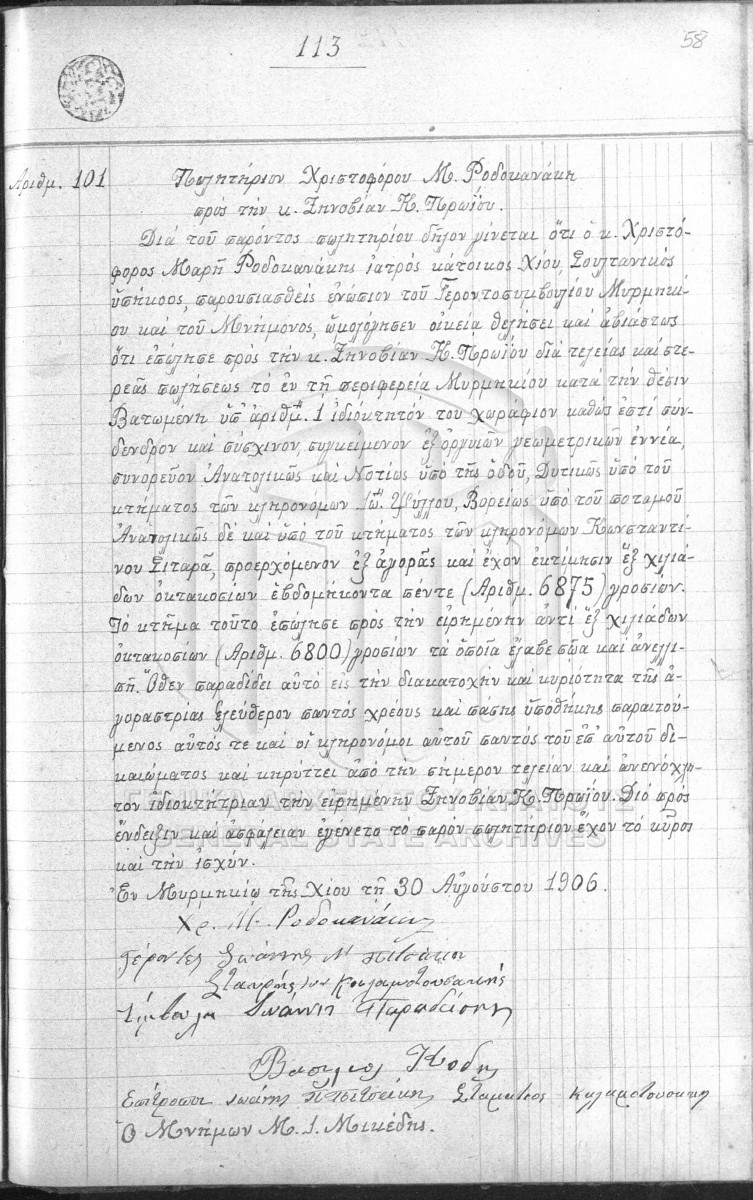 113
58
Αριθμ. 101
Πωλητήριον Χριστοφόρου Μ. Ροδοκανάκη
πρὸς τὴν κ. Ζηνοβίαν Κ. Πρωΐου.
Διὰ τοῦ παρόντος πωλητηρίου δῆλον γίνεται ὅτι ὁ κ. Χριστό-
φορος Μαρῆ Ροδοκανάκης ἰατρὸς κάτοικος Χίου, Σουλτανικὸς
ὑπήκοος, παρουσιασθεὶς ἐνώπιον τοῦ Γεροντοσυμβουλίου Μυρμηκί-
ου καὶ τοῦ Μνήμονος, ὡμολόγησεν οἰκείᾳ θελήσει καὶ ἀβιάστως
ὅτι ἐπώλησε πρὸς τὴν κ. Ζηνοβίαν Κ. Πρωΐου διὰ τελείας καὶ στε-
ρεᾶς πωλήσεως τὸ ἐν τῇ περιφερείᾳ Μυρμηκίου κατὰ τὴν θέσιν
Βατωμενη ὑπ' ἀριθμ. 1 ἰδιόκτητόν του χωράφιον καθὼς ἐστὶ σύν-
δενδρον καὶ σύσχινον, συγκείμενον ἐξ ὀργυιῶν γεωμετρικῶν ἐννέα,
συνορεῦον Ἀνατολικῶς καὶ Νοτίως ὑπὸ τῆς ὁδοῦ, Δυτικῶς ὑπὸ τοῦ
κτήματος τῶν κληρονόμων Ἰω. Ψύλλου, Βορείως ὑπὸ τοῦ ποταμοῦ
Ἀνατολικῶς δὲ καὶ ὑπὸ τοῦ κτήματος τῶν κληρονόμων Κωνσταντί-
νου Σιταρᾶ, προερχόμενον ἐξ ἀγορᾶς καὶ ἔχον ἐκτίμησιν ἓξ χιλιά-
δων ὀκτακοσίων ἑβδομήκοντα πέντε (Αριθμ. 6875) γροσίων.
Τὸ κτῆμα τοῦτο ἐπώλησε πρὸς τὴν εἰρημένην ἀντὶ ἓξ χιλιάδων
ὀκτακοσίων (Αριθμ. 6800) γροσίων τὰ ὁποῖα ἔλαβε σῶα καὶ ἀνελλι-
πῆ. Ὅθεν παραδίδει αὐτὸ εἰς τὴν διακατοχὴν καὶ κυριότητα τῆς ἀ-
γοραστρίας ἐλεύθερον παντὸς χρέους καὶ πάσης ὑποθήκης παραιτού-
μενος αὐτός τε καὶ οἱ κληρονόμοι αὐτοῦ παντὸς τοῦ ἐπ' αὐτοῦ δι-
καιώματος καὶ κηρύττει ἀπὸ τὴν σήμερον τελείαν καὶ ἀνενόχλη-
τον ἰδιοκτήτριαν τὴν εἰρημένην Ζηνοβίαν Κ. Πρωΐου. Διὸ πρὸς
ἔνδειξιν καὶ ἀσφάλειαν ἐγένετο τὸ παρὸν πωλητήριον ἔχον τὸ κῦρος
καὶ τὴν ἰσχύν.
Ἐν Μυρμηκίῳ τῆς Χίου τῇ 30 Αὐγούστου 1906.
Χρ. Μ. Ροδοκανάκης
Γέροντες Ἰωάννης Πιτσάκη
Σταυρής Καλαμωτουσακης
Σύμβουλοι Ἰωάννη Παραδείσης
Βασίλειος Κοδης
Ἐπίτροποι Ιωάνης Πιτσιάκης Σταματιος Καλαμοτουσακης
Ὁ Μνήμων Μ. Ι. Μικέδης.
ΓΕΝΙΚΑ ΑΡΧΕΙΑ ΤΟΥ ΚΡΑΤΟΥΣ
GENERAL STATE ARCHIVES